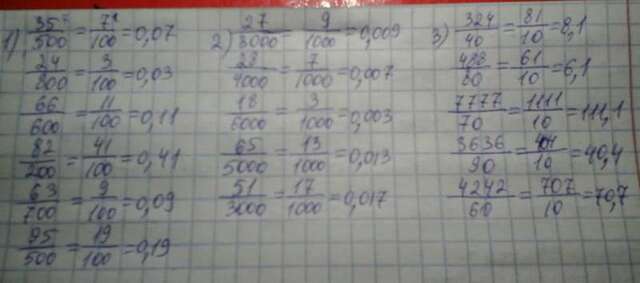 1) 35/500 = 7/100 = 0,07
24/800 = 3/100 = 0,03
66/600 = 11/100 = 0,11
82/200 = 41/100 = 0,41
63/700 = 9/100 = 0,09
95/500 = 19/100 = 0,19
2) 27/3000 = 9/1000 = 0,009
28/4000 = 7/1000 = 0,007
18/6000 = 3/1000 = 0,003
65/5000 = 13/1000 = 0,013
51/3000 = 17/1000 = 0,017
3) 324/40 = 81/10 = 8,1
488/80 = 61/10 = 6,1
7777/70 = 1111/10 = 111,1
3636/90 = 404/10 = 40,4
4242/60 = 707/10 = 70,7